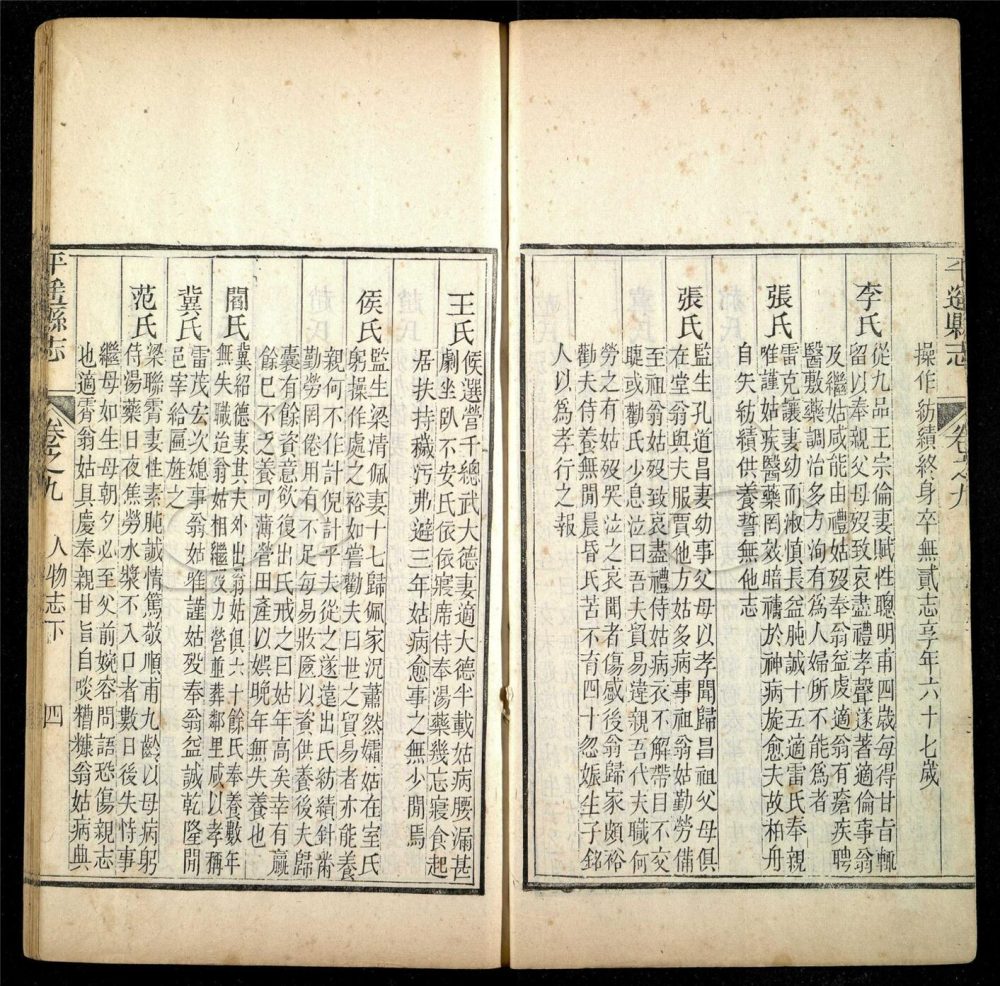 平遙縣志
卷之九
操作紡績終身卒無貳志享年六十七歲
李氏
從九品王宗倫妻賦性聰明甫四歲每得甘旨輒
留以奉親父母歿致哀盡禮孝聲遂著適倫事翁
及繼姑咸能由禮姑歿奉翁益處適翁有瘡疾聘
醫敷藥調治多方洵有爲人婦所不能爲者
張氏
雷克讓妻幼而淑慎長益肫誠十五適雷氏奉親
唯謹姑疾醫藥罔效暗禱於神病旋愈夫故柏舟
自矢紡績供養誓無他志
張氏
監生孔道昌妻幼事父母以孝聞歸昌祖父母俱
在堂翁與夫服賈他方姑多病事祖翁姑勤勞備
至祖翁姑歿致哀盡禮侍姑病衣不解帶目不交
睫或勸氏少息泣曰吾夫貿易違親吾代夫職何
勞之有姑歿哭泣之哀聞者傷感後翁歸家頗裕
勸夫侍養無閒晨昏氏苦不育四十忽娠生子銘
人以爲孝行之報
王氏
候選營千總武大德妻適大德半載姑病腰漏甚
劇坐臥不安氏依依寢席侍奉湯藥幾忘寢食起
居扶持穢污弗避三年姑病愈事之無少閒焉
侯氏
監生梁清佩妻十七歸佩家況蕭然孀姑在室氏
躬操作處之裕如嘗勸夫曰世之貿易者亦能養
親何不作計倪計乎夫從之遂遠出氏紡績針黹
勤勞罔倦用有不足每易妝匳以資供養後夫歸
囊有餘資意欲復出氏戒之曰姑年高矣幸有贏
餘已不乏養可薄營田產以娛晚年無失養也
閻氏
冀紹德妻其夫外出翁姑俱六十餘氏奉養數年
無失職迨翁姑相繼歿力營並葬鄰里咸以孝稱
冀氏
雷茂宏次媳事翁姑唯謹姑歿奉翁益誠乾隆閒
邑宰給匾旌之
范氏
梁聯霄妻性素肫誠情篤敬順甫九齡以母病躬
侍湯藥日夜焦勞水漿不入口者數日後失恃事
繼母如生母朝夕必至父前婉容問語恐傷親志
也適霄翁姑具慶奉親甘旨自啖糟糠翁姑病典
平遙縣志
卷之九
人物志下
四